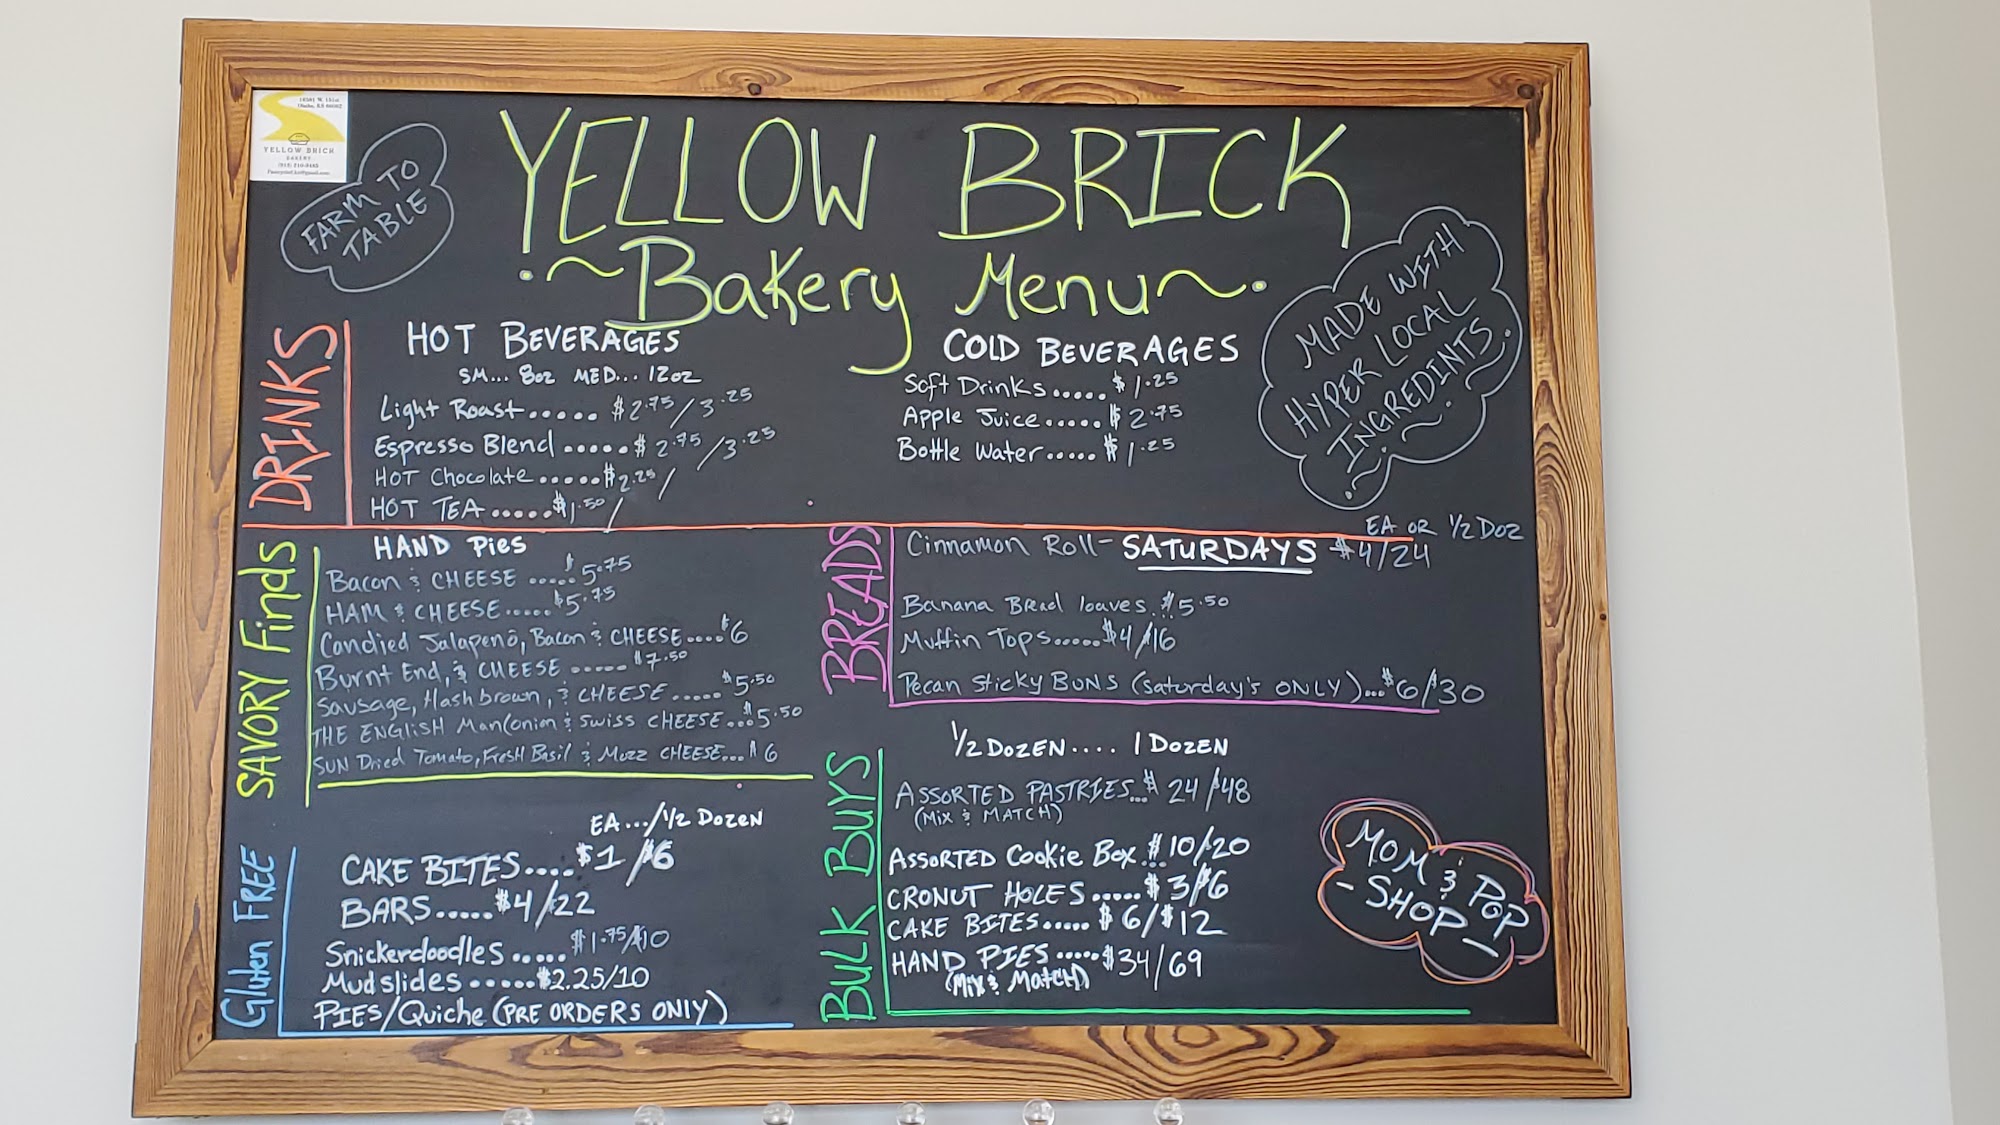 YELLOW BRICK
BAKERY
FARM TO
TABLE
YELLOW BRICK
~Bakery Menu~
MADE WITH
HYPER LOCAL
INGREDINTS
DRINKS
HOT BEVERAGES
SM... 8oz MED... 12oz
Light Roast..... $2.75/3.25
Espresso Blend.....$2.75/3.25
HOT Chocolate.....$2.25/
HOT TEA.....$1.50/
COLD BEVERAGES
Soft Drinks.....$1.25
Apple Juice.....$2.75
Bottle Water.....$1.25
SAVORY Finds
HAND Pies
Bacon & CHEESE.....$5.75
HAM & CHEESE.....$5.75
Candied Jalapenō, Bacon & CHEESE....$6
Burnt End, & CHEESE.....$7.50
Sausage, Hashbrown, & CHEESE.....$5.50
THE ENGLISH Man(onion & Swiss CHEESE...$5.50
SUN Dried Tomato, Fresh Basil & Mozz CHEESE...$6
BREADS
EA OR 1/2 Doz
Cinnamon Roll- SATURDAYS $4/24
Banana Bread loaves..$5.50
Muffin Tops.....$4/16
Pecan Sticky BUNS (Saturday's ONLY)...$6/$30
Gluten FREE
EA.../1/2 DOZEN
CAKE BITES....$1/$6
BARS.....$4/22
Snickerdoodles.....$1.75/$10
Mudslides.....$2.25/10
PIES/Quiche (PRE ORDERS ONLY)
BULK BUYS
1/2 DOZEN.... 1 DOZEN
ASSORTED PASTRIES...$24/$48
(Mix & MATCH)
ASSORTED Cookie Box...$10/20
CRONUT HOLES.....$3/$6
CAKE BITES.....$6/$12
HAND PIES.....$34/69
(Mix & Match)
MOM & POP
-SHOP-